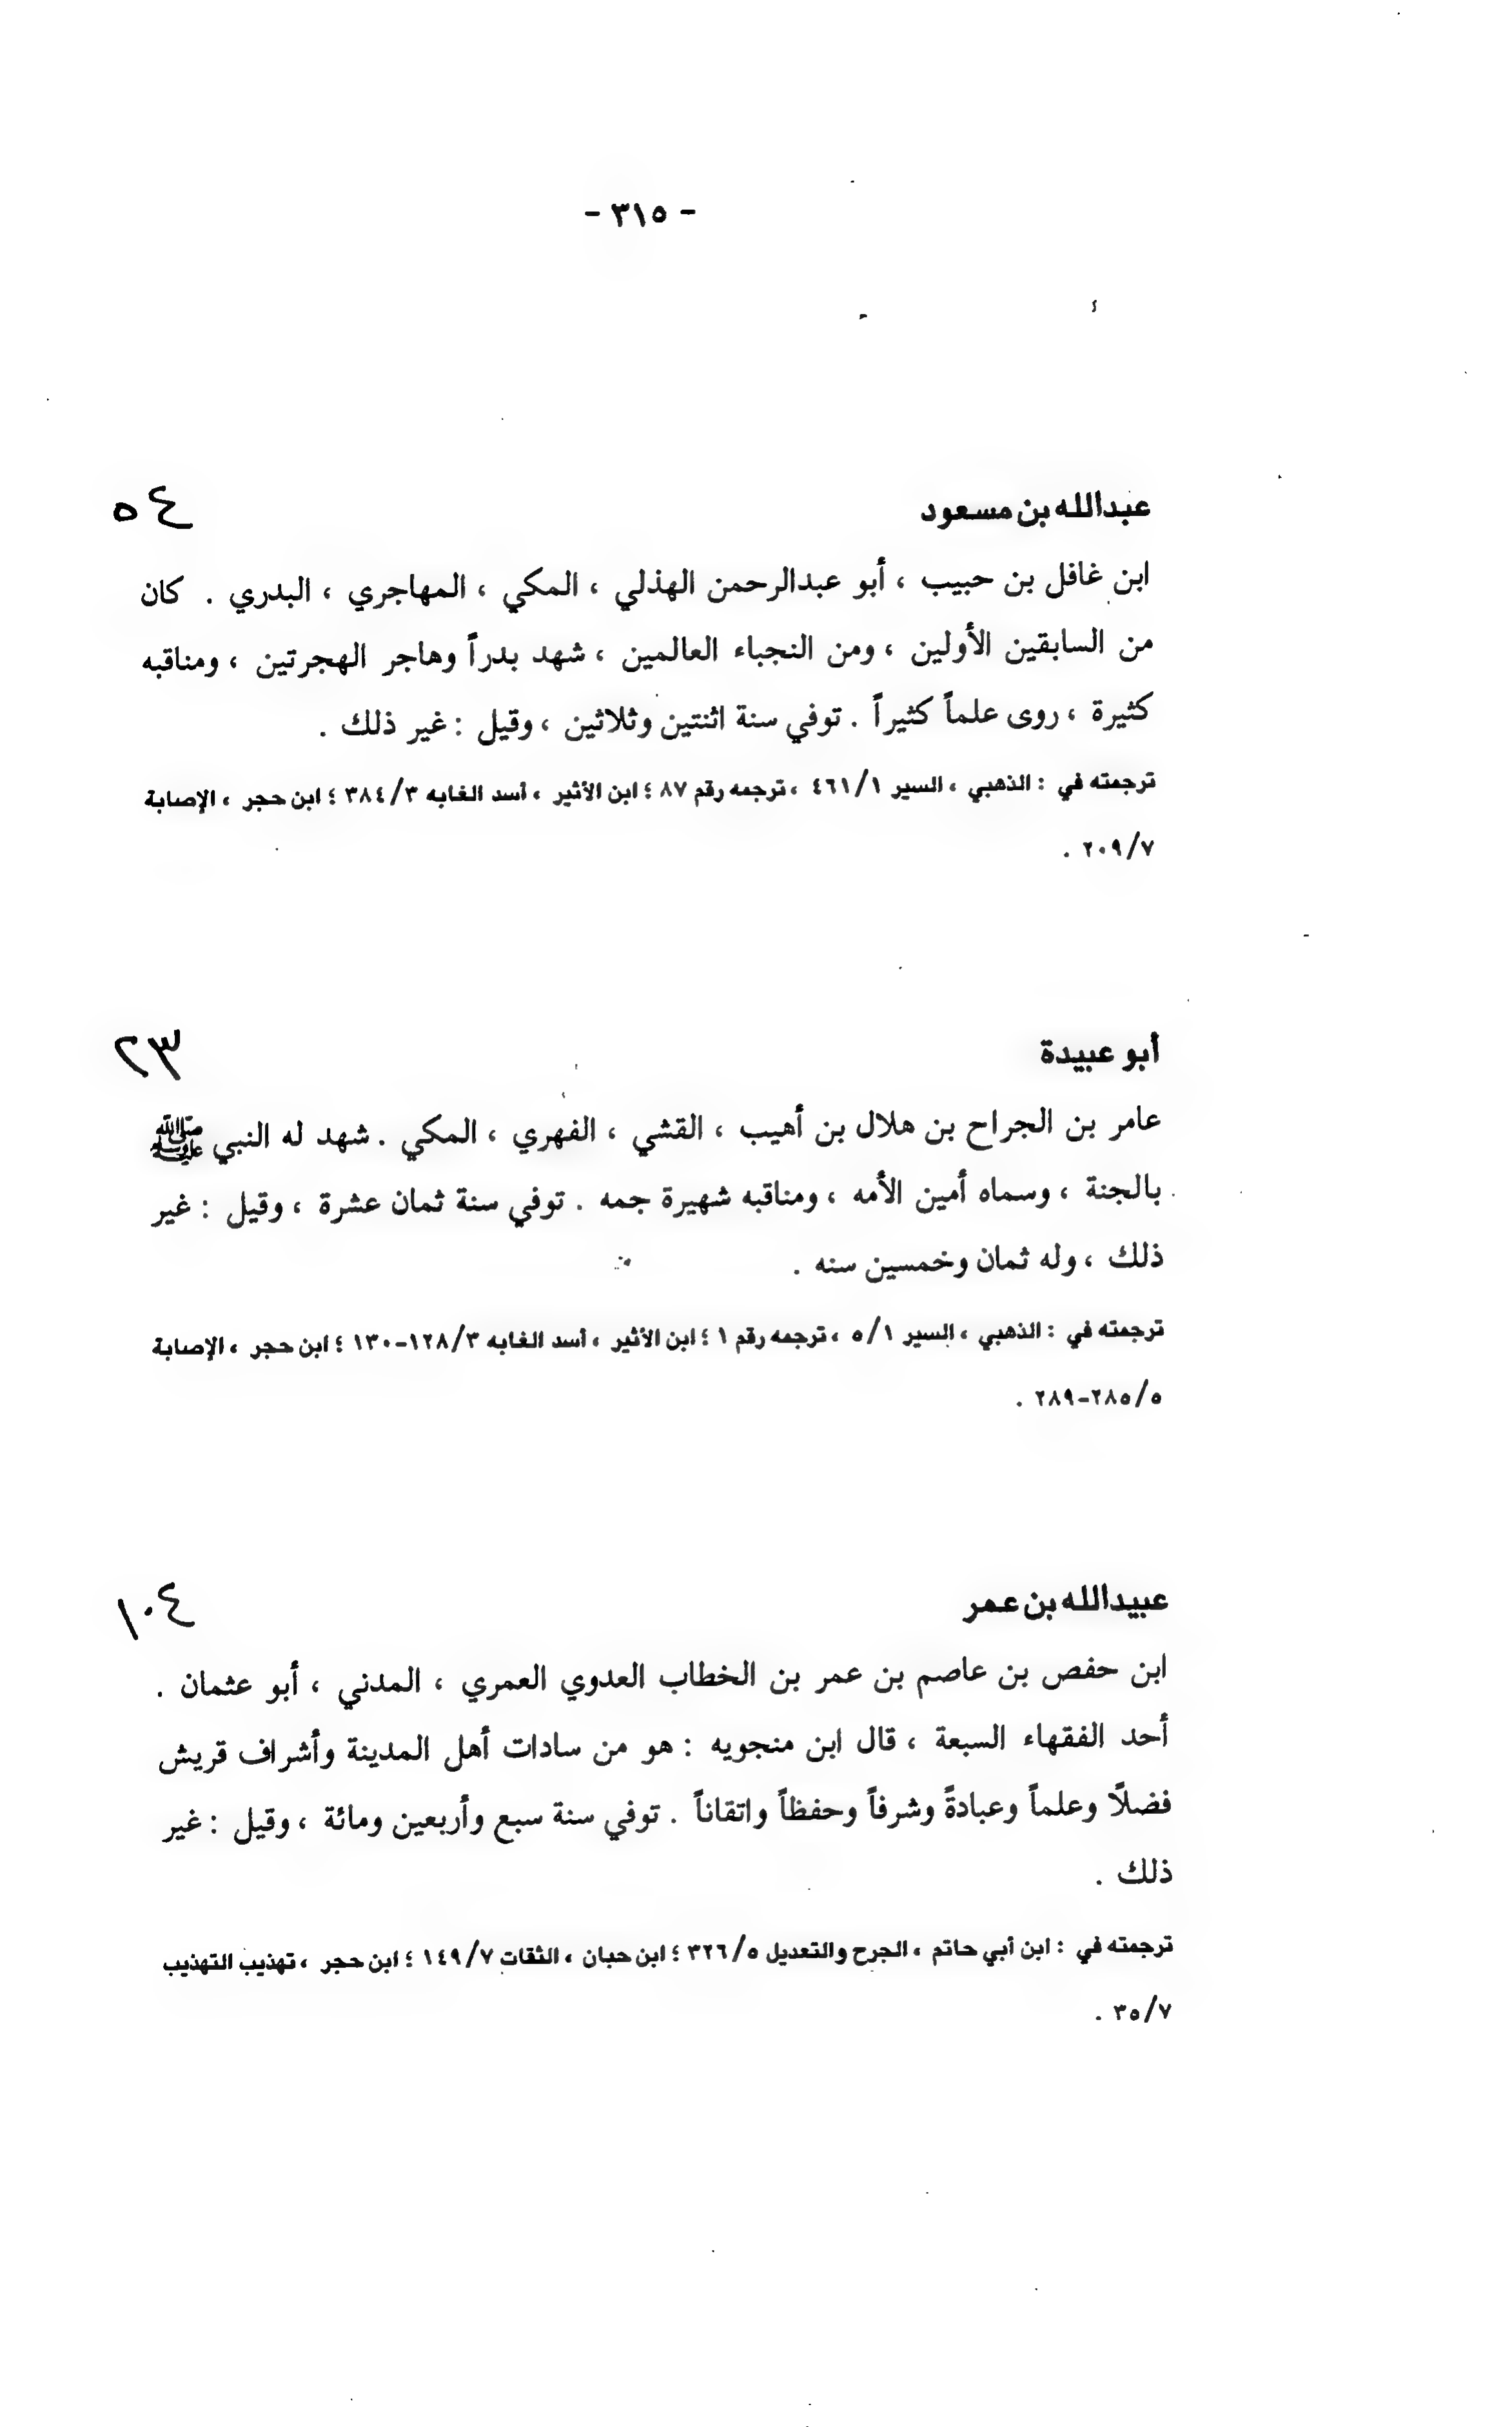 - ٣١٥ -
عبدالله بن مسعود ٥٤
ابن غافل بن حبيب ، أبو عبدالرحمن الهذلي ، المكي ، المهاجري ، البدري . كان
من السابقين الأولين ، ومن النجباء العالمين ، شهد بدراً وهاجر الهجرتين ، ومناقبه
كثيرة ، روى علماً كثيراً . توفي سنة اثنتين وثلاثين ، وقيل : غير ذلك .
ترجمته في : الذهبي ، السير ٤٦١/١ ، ترجمه رقم ٨٧ ؛ ابن الأثير ، أسد الغابه ٣٨٤/٣ ؛ ابن حجر ، الإصابة
٢٠٩/٧ .
أبو عبيدة ٢٣
عامر بن الجراح بن هلال بن أهيب ، القشي ، الفهري ، المكي . شهد له النبي ﷺ
بالجنة ، وسماه أمين الأمه ، ومناقبه شهيرة جمه . توفي سنة ثمان عشرة ، وقيل : غير
ذلك ، وله ثمان وخمسين سنه .
ترجمته في : الذهبي ، السير ٥/١ ، ترجمه رقم ١ ؛ ابن الأثير ، أسد الغابه ١٢٨/٣-١٣٠ ؛ ابن حجر ، الإصابة
٢٨٥/٥-٢٨٩ .
عبيدالله بن عمر ١٠٤
ابن حفص بن عاصم بن عمر بن الخطاب العدوي العمري ، المدني ، أبو عثمان .
أحد الفقهاء السبعة ، قال ابن منجويه : هو من سادات أهل المدينة وأشراف قريش
فضلًا وعلماً وعبادةً وشرفاً وحفظاً واتقاناً . توفي سنة سبع وأربعين ومائة ، وقيل : غير
ذلك .
ترجمته في : ابن أبي حاتم ، الجرح والتعديل ٣٢٦/٥ ؛ ابن حبان ، الثقات ١٤٩/٧ ؛ ابن حجر ، تهذيب التهذيب
٣٥/٧ .